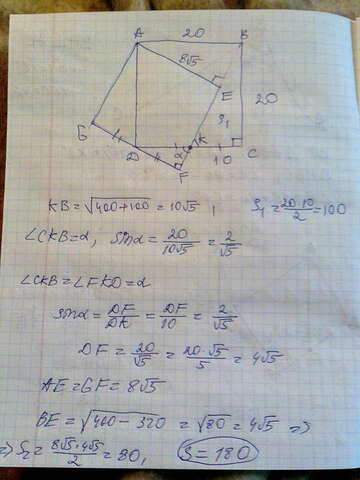 A 20 B
8√5
E
20
S₁
G
K
D 2 10 C
F
KB = √400+100 = 10√5 , S₁ = 20·10/2 = 100
∠CKB = α, sinα = 20/10√5 = 2/√5
∠CKB = ∠FKD = α
sinα = DF/DK = DF/10 = 2/√5
DF = 20/√5 = 20·√5/5 = 4√5
AE = GF = 8√5
BE = √400 - 320 = √80 = 4√5 =>
=> S₂ = 8√5·4√5/2 = 80, S = 180